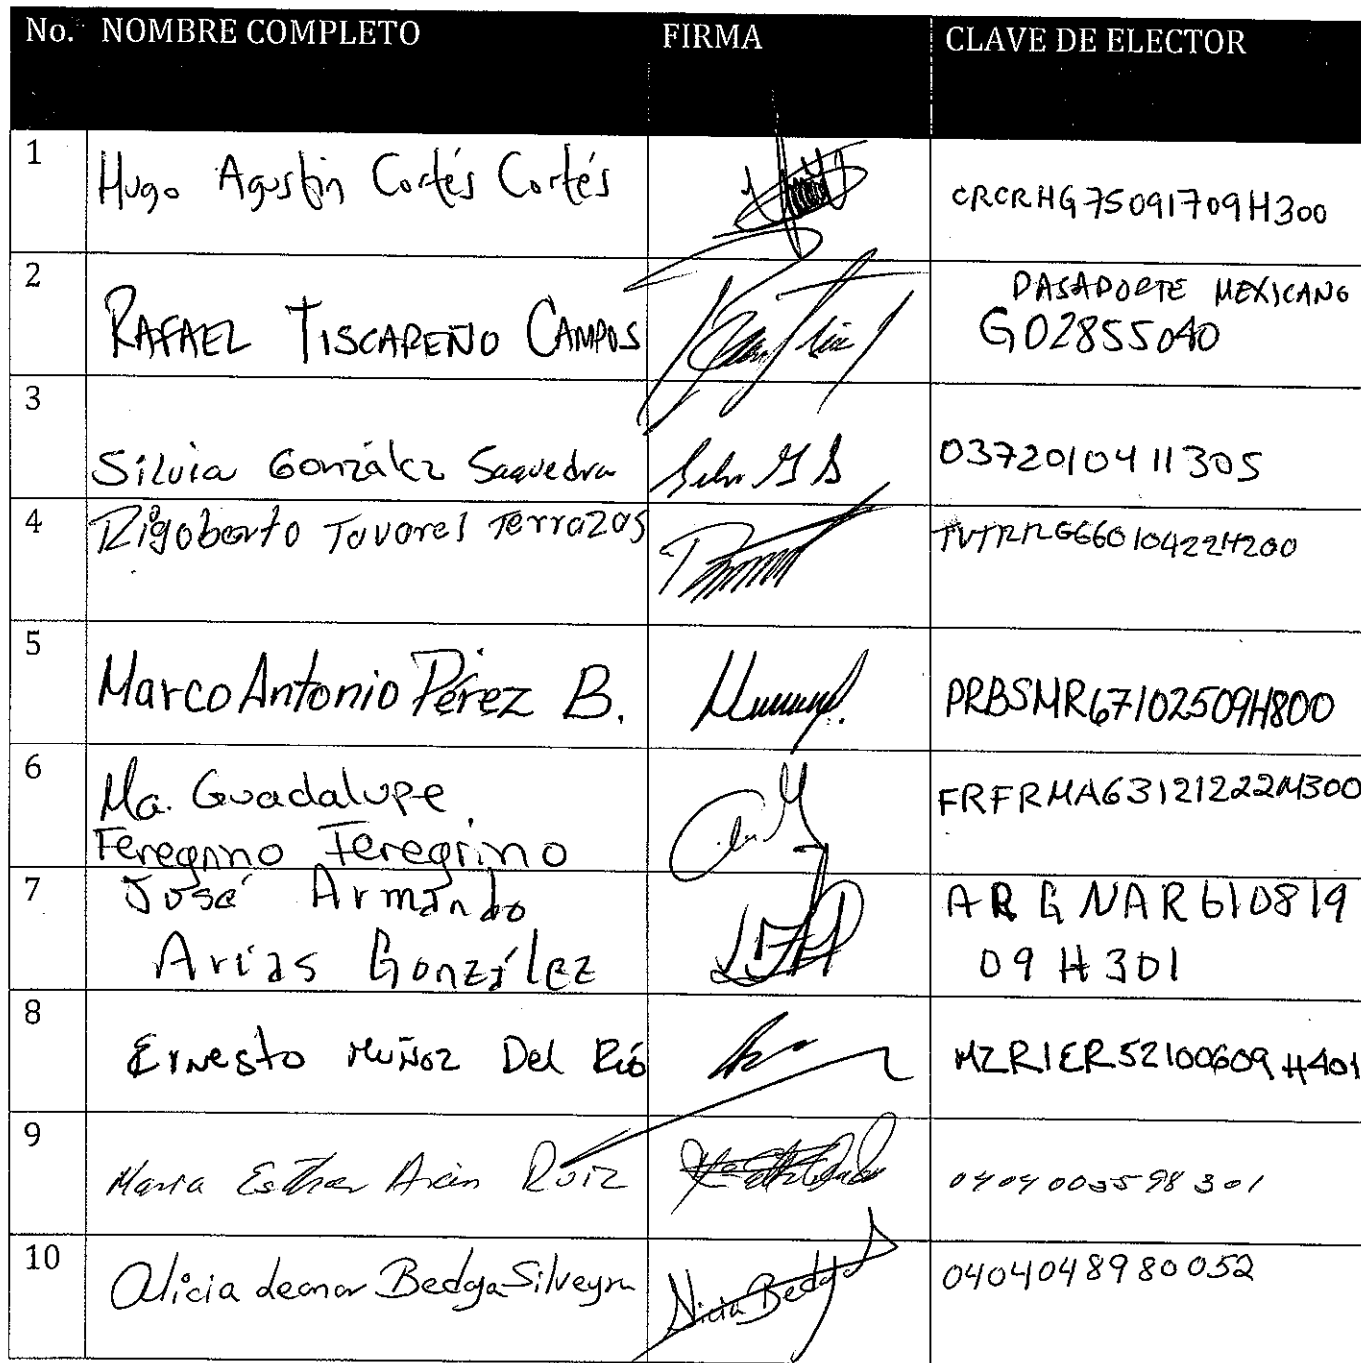 No. NOMBRE COMPLETO FIRMA CLAVE DE ELECTOR
1 Hugo Agustín Cortés Cortés CRCRHG75091709H300
2 RAFAEL TISCAREÑO CAMPOS PASAPORTE MEXICANO
G02855040
3 Silvia González Saavedra 0372010411305
4 Rigoberto Tavares Terrazas TVTRRG66010422H200
5 Marco Antonio Pérez B. PRBSMR67102509H800
6 Ma. Guadalupe FRFRMA63121222M300
Feregrino Feregrino
7 José Armando ARGNAR610819
Arias González 09H301
8 Ernesto Muñoz Del Río MZRIER52100609H401
9 Maria Esther Ruiz 0404003598301
10 Alicia Leonor Bedoya Silveyra Alicia Bedoya 0404048980052